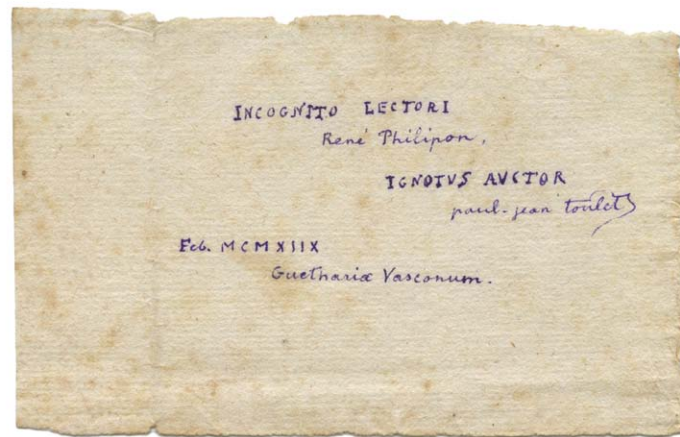 INCOGNITO LECTORI
René Philipon,
IGNOTVS AVCTOR
paul-jean toulet
Feb. MCMXIIX
Guethariæ Vasconum.